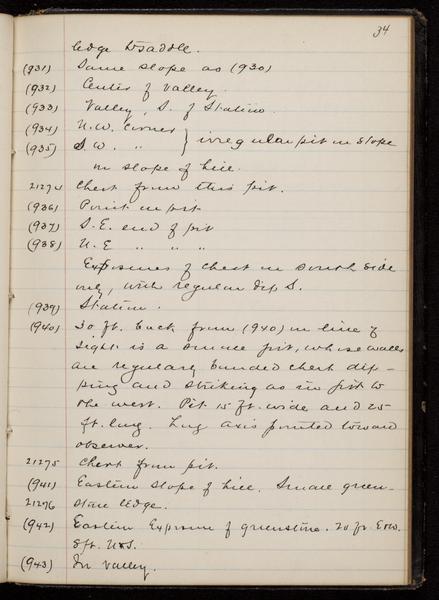 34
ledge to saddle.
(931) Same slope as (930)
(932) Center of valley.
(933) Valley, S. of Station.
(934) N.W. Corner } irregular pit in slope
(935) S.W. "
in slope of hill.
21274 Chert from this pit.
(936) Point in pit
(937) S.E. end of pit
(938) N.E " " "
Exposures of chert in south side
only, with regular dip S.
(939) Station.
(940) 30 ft. back from (940) in line of
sight is a small pit, whose walls
are regularly banded chert dip-
ping and striking as in pit to
the west. Pit 15 ft. wide and 25
ft. long. Long axis pointed toward
observer.
21275 Chert from pit.
(941) Eastern slope of hill. Small green-
21276 stone ledge.
(942) Eastern Exposure of greenstone. 20 ft. E & W.
8 ft. N & S.
(943) In valley.